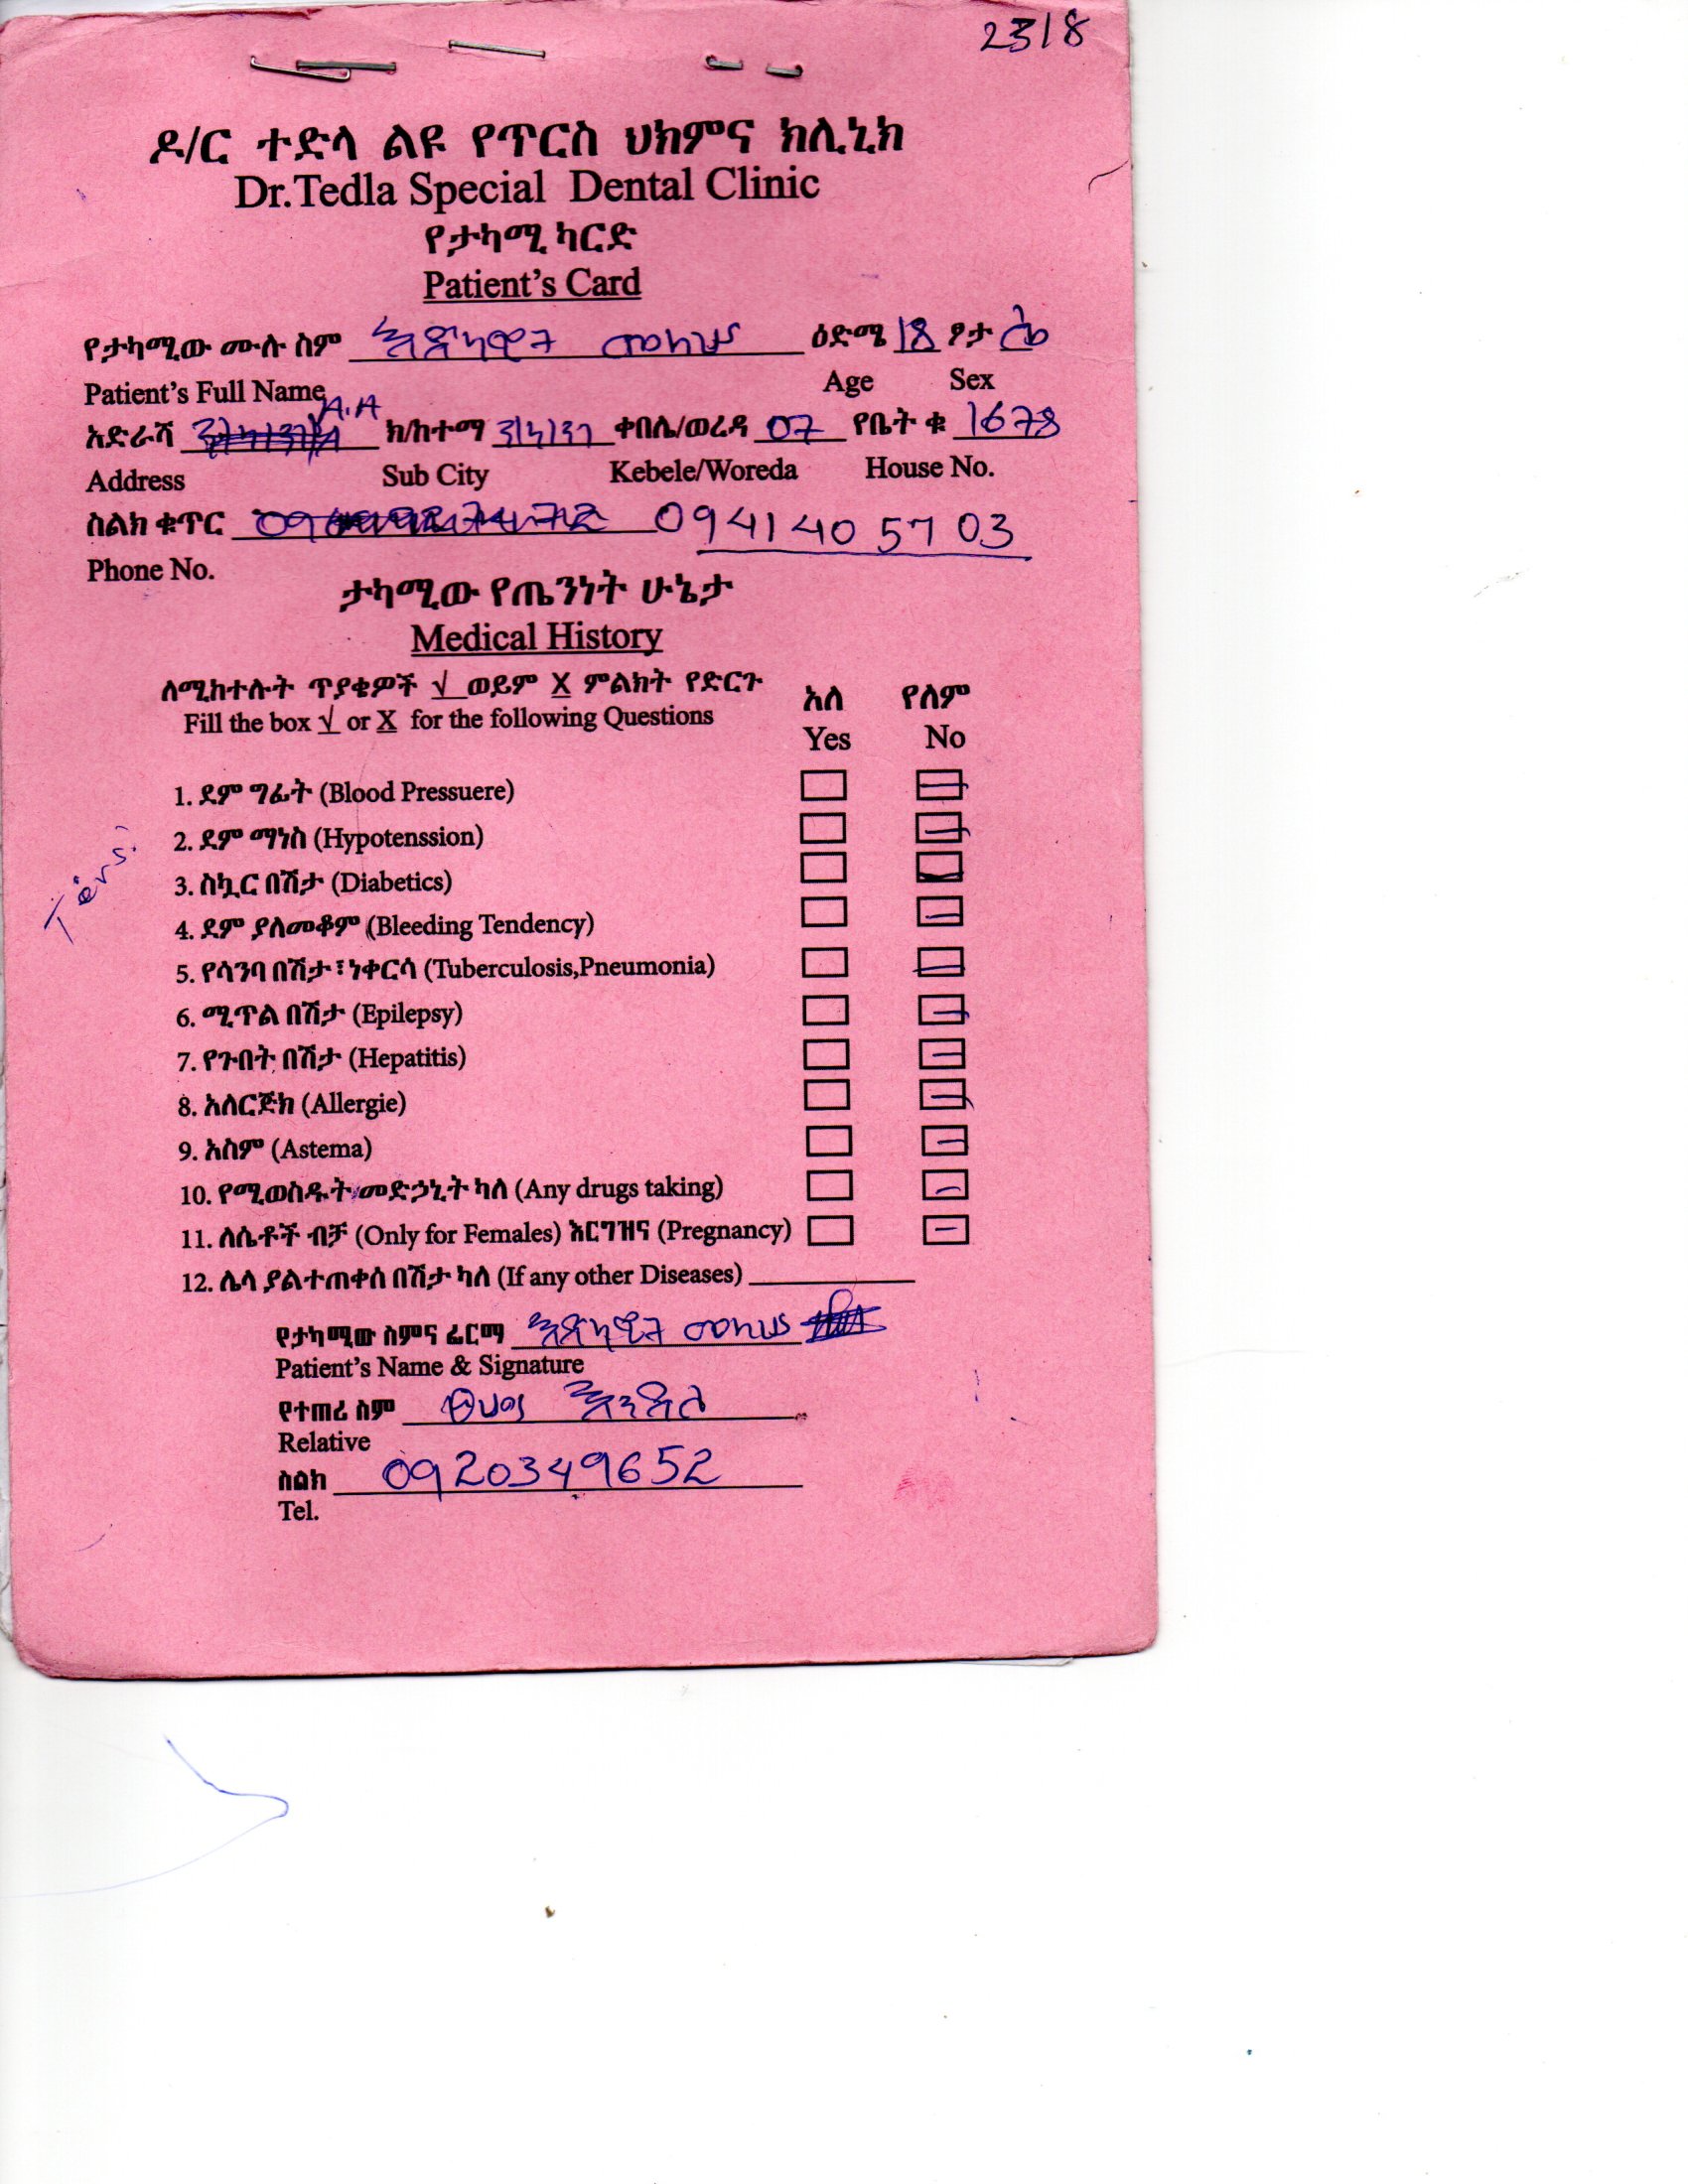 2318
ዶ/ር ተድላ ልዩ የጥርስ ህክምና ክሊኒክ
Dr.Tedla Special Dental Clinic
የታካሚ ካርድ
Patient's Card
የታካሚው ሙሉ ስም ዕድሜ 18 ፆታ ሴ
Patient's Full Name Age Sex
A.A
አድራሻ ክ/ከተማ ቀበሌ/ወረዳ 07 የቤት ቁ 1678
Address Sub City Kebele/Woreda House No.
ስልክ ቁጥር 0941405703
Phone No.
ታካሚው የጤንነት ሁኔታ
Medical History
ለሚከተሉት ጥያቄዎች √ ወይም X ምልክት የድርጉ አለ የለም
Fill the box √ or X for the following Questions Yes No
1. ደም ግፊት (Blood Pressuere)
2. ደም ማነስ (Hypotenssion)
3. ስኳር በሽታ (Diabetics)
4. ደም ያለመቆም (Bleeding Tendency)
5. የሳንባ በሽታ፣ ነቀርሳ (Tuberculosis,Pneumonia)
6. ሚጥል በሽታ (Epilepsy)
7. የጉበት በሽታ (Hepatitis)
8. አለርጅክ (Allergie)
9. አስም (Astema)
10. የሚወስዱት መድኃኒት ካለ (Any drugs taking)
11. ለሴቶች ብቻ (Only for Females) እርግዝና (Pregnancy)
12. ሌላ ያልተጠቀሰ በሽታ ካለ (If any other Diseases)
የታካሚው ስምና ፊርማ
Patient's Name & Signature
የተጠሪ ስም
Relative
ስልክ 0920349652
Tel.